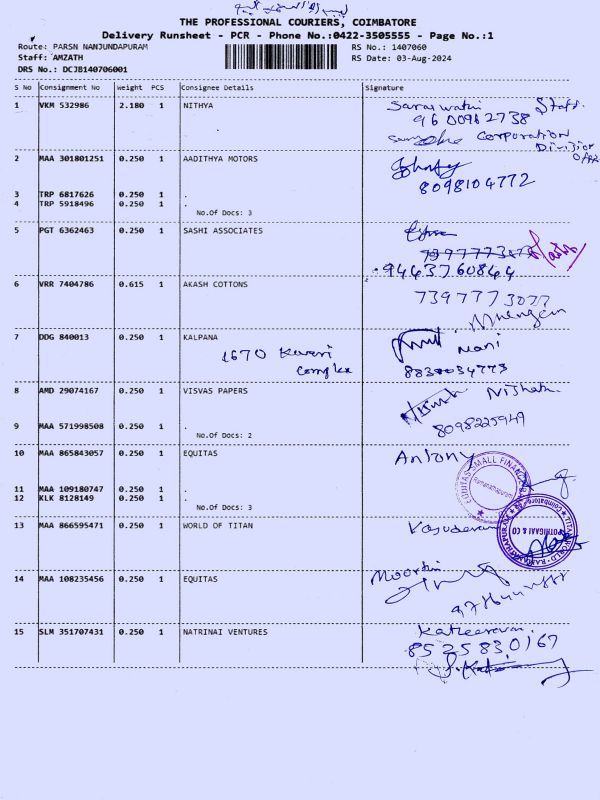 THE PROFESSIONAL COURIERS, COIMBATORE
Delivery Runsheet - PCR - Phone No.:0422-3505555 - Page No.:1
Route: PARSN NANJUNDAPURAM
RS No.: 1407060
Staff: AMZATH
RS Date: 03-Aug-2024
DRS No.: DCJB140706001
S No Consignment No weight PCS Consignee Details Signature
1 VKM 532986 2.180 1 NITHYA Saraswathi Staff
9600982738
Corporation
Division
2 MAA 301801251 0.250 1 AADITHYA MOTORS
8098104772
3 TRP 6817626 0.250 1 .
4 TRP 5918496 0.250 1 .
No.Of Docs: 3
5 PGT 6362463 0.250 1 SASHI ASSOCIATES
9443760844
6 VRR 7404786 0.615 1 AKASH COTTONS 7397773077
7 DDG 840013 0.250 1 KALPANA
1670 Kaveri Mani
Complex
8 AMD 29074167 0.250 1 VISVAS PAPERS
8098225949
9 MAA 571998508 0.250 1 .
No.Of Docs: 2
10 MAA 865843057 0.250 1 EQUITAS Antony
EQUITAS SMALL FINANCE
Ramanathapuram
11 MAA 109180747 0.250 1 .
12 KLK 8128149 0.250 1 .
No.Of Docs: 3
13 MAA 866595471 0.250 1 WORLD OF TITAN Vasudevan
POTHIGAAI & CO
14 MAA 108235456 0.250 1 EQUITAS
15 SLM 351707431 0.250 1 NATRINAI VENTURES
8525830167